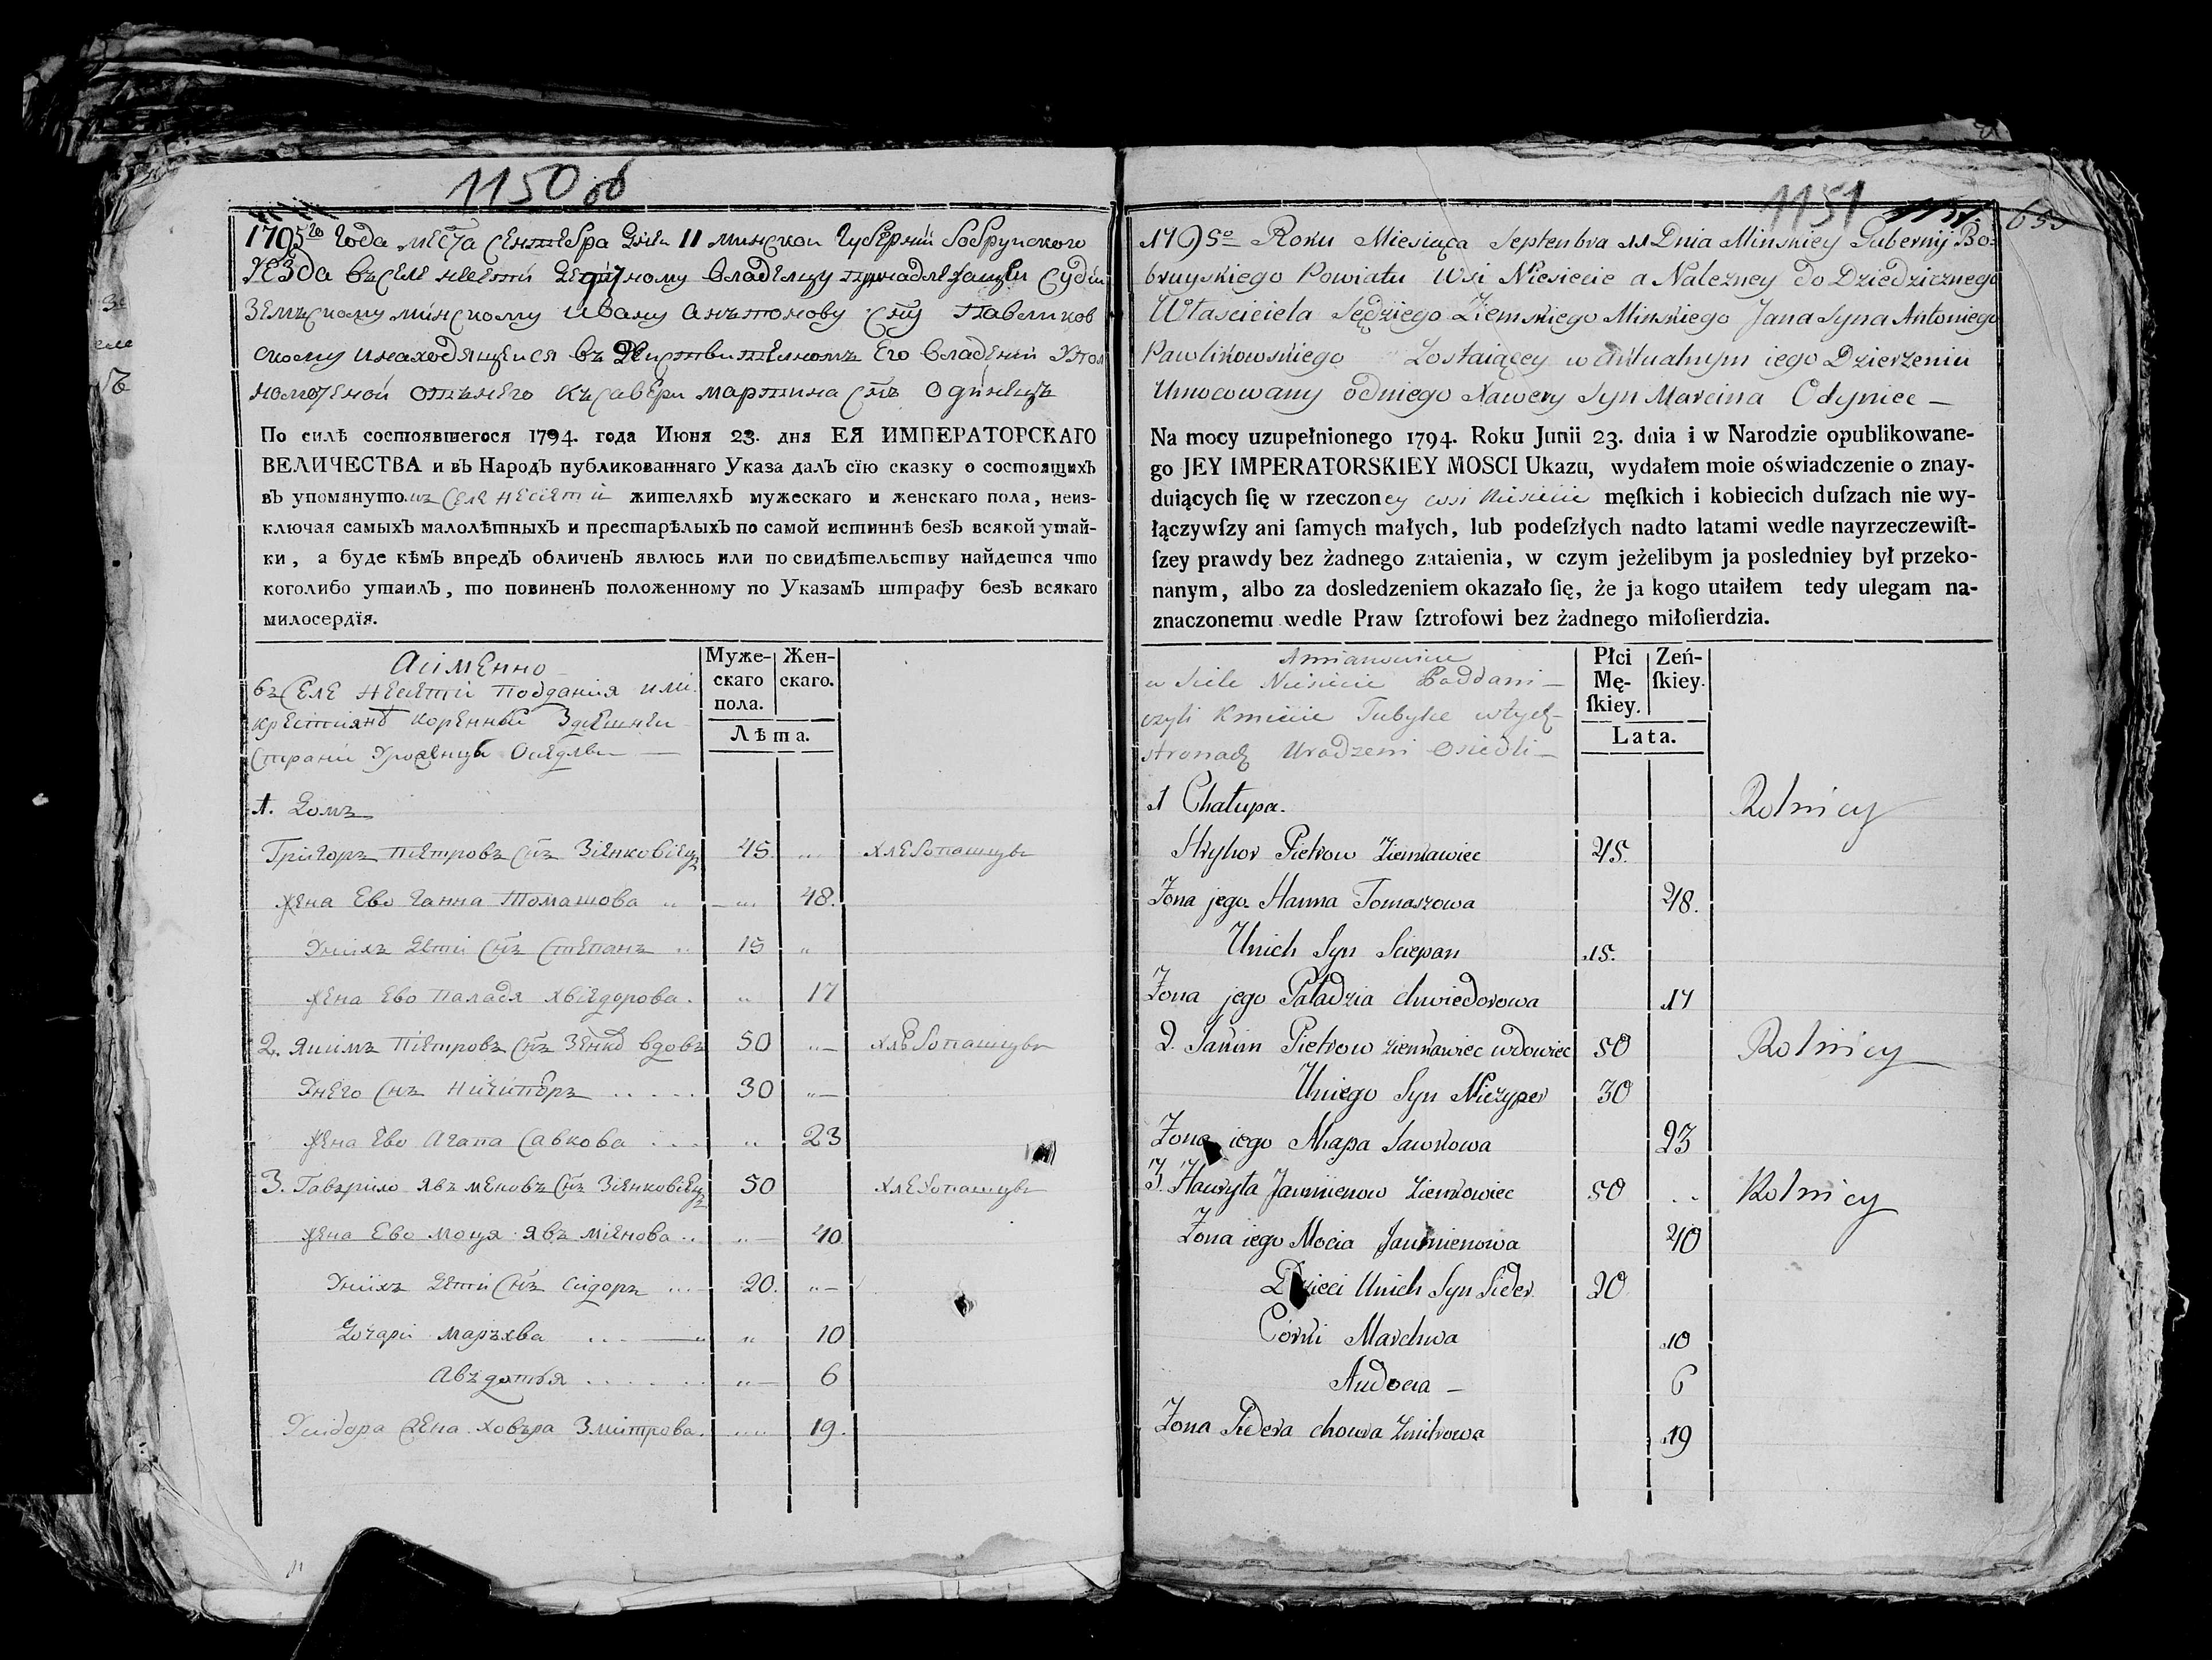 1150 об
1795го Года месяца сентебра дня 11 минской Губерний бобруйского
уезда въ селе несети дедичному владелцу принадлежащей судьи
земъскому минскому Ивану анътонову сну Павликов
скому инаходящеися въ действителномъ его владений упол
номоченой отънего Къзавери мартина снъ Одинецъ
По силѣ состоявшегося 1794. года Июня 23. дня ЕЯ ИМПЕРАТОРСКАГО
ВЕЛИЧЕСТВА и въ Народъ публикованнаго Указа далъ сїю сказку о состоящихъ
въ упомянутомъ селе несети жителяхъ мужескаго и женскаго пола, неиз-
ключая самыхъ малолѣтныхъ и престарѣлыхъ по самой истиннѣ безъ всякой утай-
ки, а буде кѣмъ впредъ обличенъ явлюсь или по свидѣтельству найдется что
коголибо утаилъ, то повиненъ положенному по Указамъ штрафу безъ всякаго
милосердїя.
Аименно
въ селе несети поддания или
крестиянѣ коренный здешнеи
страни уроденцы оседлы
Муже-скаго пола. Жен-скаго.
Лѣта.
1. Домъ
Григоръ Петровъ снъ Зенковiецъ 45. хлебопашцы
жена ево Ганна Томашова 48.
униихъ дети снъ Степанъ 15
жена ево паладя хвiедорова. 17
2. Якимъ Петровъ снъ Зенко вдовъ 50 хлебопашцы
унего снъ ничипоръ 30
жена ево агапа савкова 23
3. Гавърило явъменовъ снъ Зiенковiецъ 50 хлебопашцы
жена ево моця явъмiенова 40
униихъ дети снъ сидоръ 20.
дочари маръхва 10
авъдотья 6
усидора жена ховъра Змитрова. 19.
1151 1151 655
1795o Roku Miesiąca Septembra 11 Dnia Minskiey Gubernij Bo=
bruyskiego Powiatu wsi Niesiecie a Nalezney do Dziedzicznego
Własciciela Sędziego Ziemskiego Minskiego Jana Syna Antoniego
Pawlikowskiego Zostaiącey w aktualnym iego Dzierzeniu
Umocowany odniego Xawery Syn Marcina Odyniec —
Na mocy uzupełnionego 1794. Roku Junii 23. dnia i w Narodzie opublikowane-
go JEY IMPERATORSKIEY MOSCI Ukazu, wydałem moie oświadczenie o znay-
duiących ſię w rzeczoney wsi Niesiecie męſkich i kobiecich duſzach nie wy-
łączywſzy ani ſamych małych, lub podeſzłych nadto latami wedle nayrzeczewiſt-
ſzey prawdy bez żadnego zataienia, w czym jeżelibym ja posledniey był przeko-
nanym, albo za dosledzeniem okazało ſię, że ja kogo utaiłem tedy ulegam na-
znaczonemu wedle Praw ſztrofowi bez żadnego miłoſierdzia.
Amianowicie
w Siele Niesiecie Poddani —
czyli Kmiecie Tubylce wtych
stronach Urodzeni Osiedli —
Płci Mę-ſkiey. Zeń-ſkiey.
Lata.
1 Chałupa. Rolnicy
Hryhor Pietrow Zienkawiec 45.
Zona jego Hanna Tomaszowa 48.
Unich Syn Sciepan 15.
Zona jego Paładzia chwiedorowa 17
2. Jakim Pietrow zienkawiec wdowiec 50 Rolnicy
Uniego Syn Niczyper 30
Zona iego Ahapa Sawkowa 23
3. Hawryła Jaumienow Zienkowiec 50 Rolnicy
Zona iego Mocia Jaumienowa 40
Dzieci Unich Syn Sider 20
Córki Marchwa 10
Audocia — 6
Zona Sidera chowra Zmitrowa 19